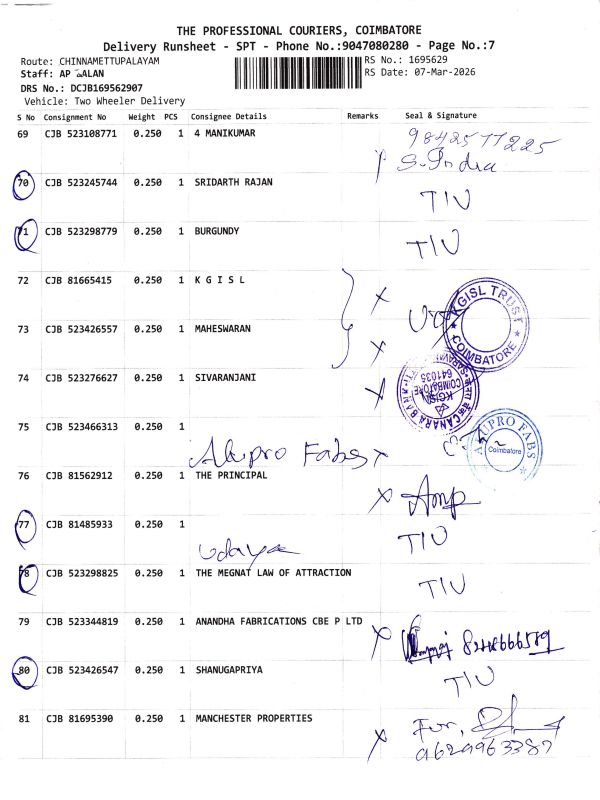 THE PROFESSIONAL COURIERS, COIMBATORE
Delivery Runsheet - SPT - Phone No.:9047080280 - Page No.:7
Route: CHINNAMETTUPALAYAM
RS No.: 1695629
Staff: AP
RS Date: 07-Mar-2026
DRS No.: DCJB169562907
Vehicle: Two Wheeler Delivery
S No Consignment No Weight PCS Consignee Details Remarks Seal & Signature
69 CJB 523108771 0.250 1 4 MANIKUMAR 9842577225
S. Indra
70 CJB 523245744 0.250 1 SRIDARTH RAJAN TIU
71 CJB 523298779 0.250 1 BURGUNDY TIU
72 CJB 81665415 0.250 1 K G I S L
KGISL TRUST
COIMBATORE
73 CJB 523426557 0.250 1 MAHESWARAN
74 CJB 523276627 0.250 1 SIVARANJANI
CANARA BANK
KGISL
COIMBATORE
641035
75 CJB 523466313 0.250 1
Alupro Fabs
ALUPRO FABS
Coimbatore
76 CJB 81562912 0.250 1 THE PRINCIPAL
77 CJB 81485933 0.250 1 TIU
Udaya
78 CJB 523298825 0.250 1 THE MEGNAT LAW OF ATTRACTION TIU
79 CJB 523344819 0.250 1 ANANDHA FABRICATIONS CBE P LTD
80 CJB 523426547 0.250 1 SHANUGAPRIYA TIU
81 CJB 81695390 0.250 1 MANCHESTER PROPERTIES For,
9629963387